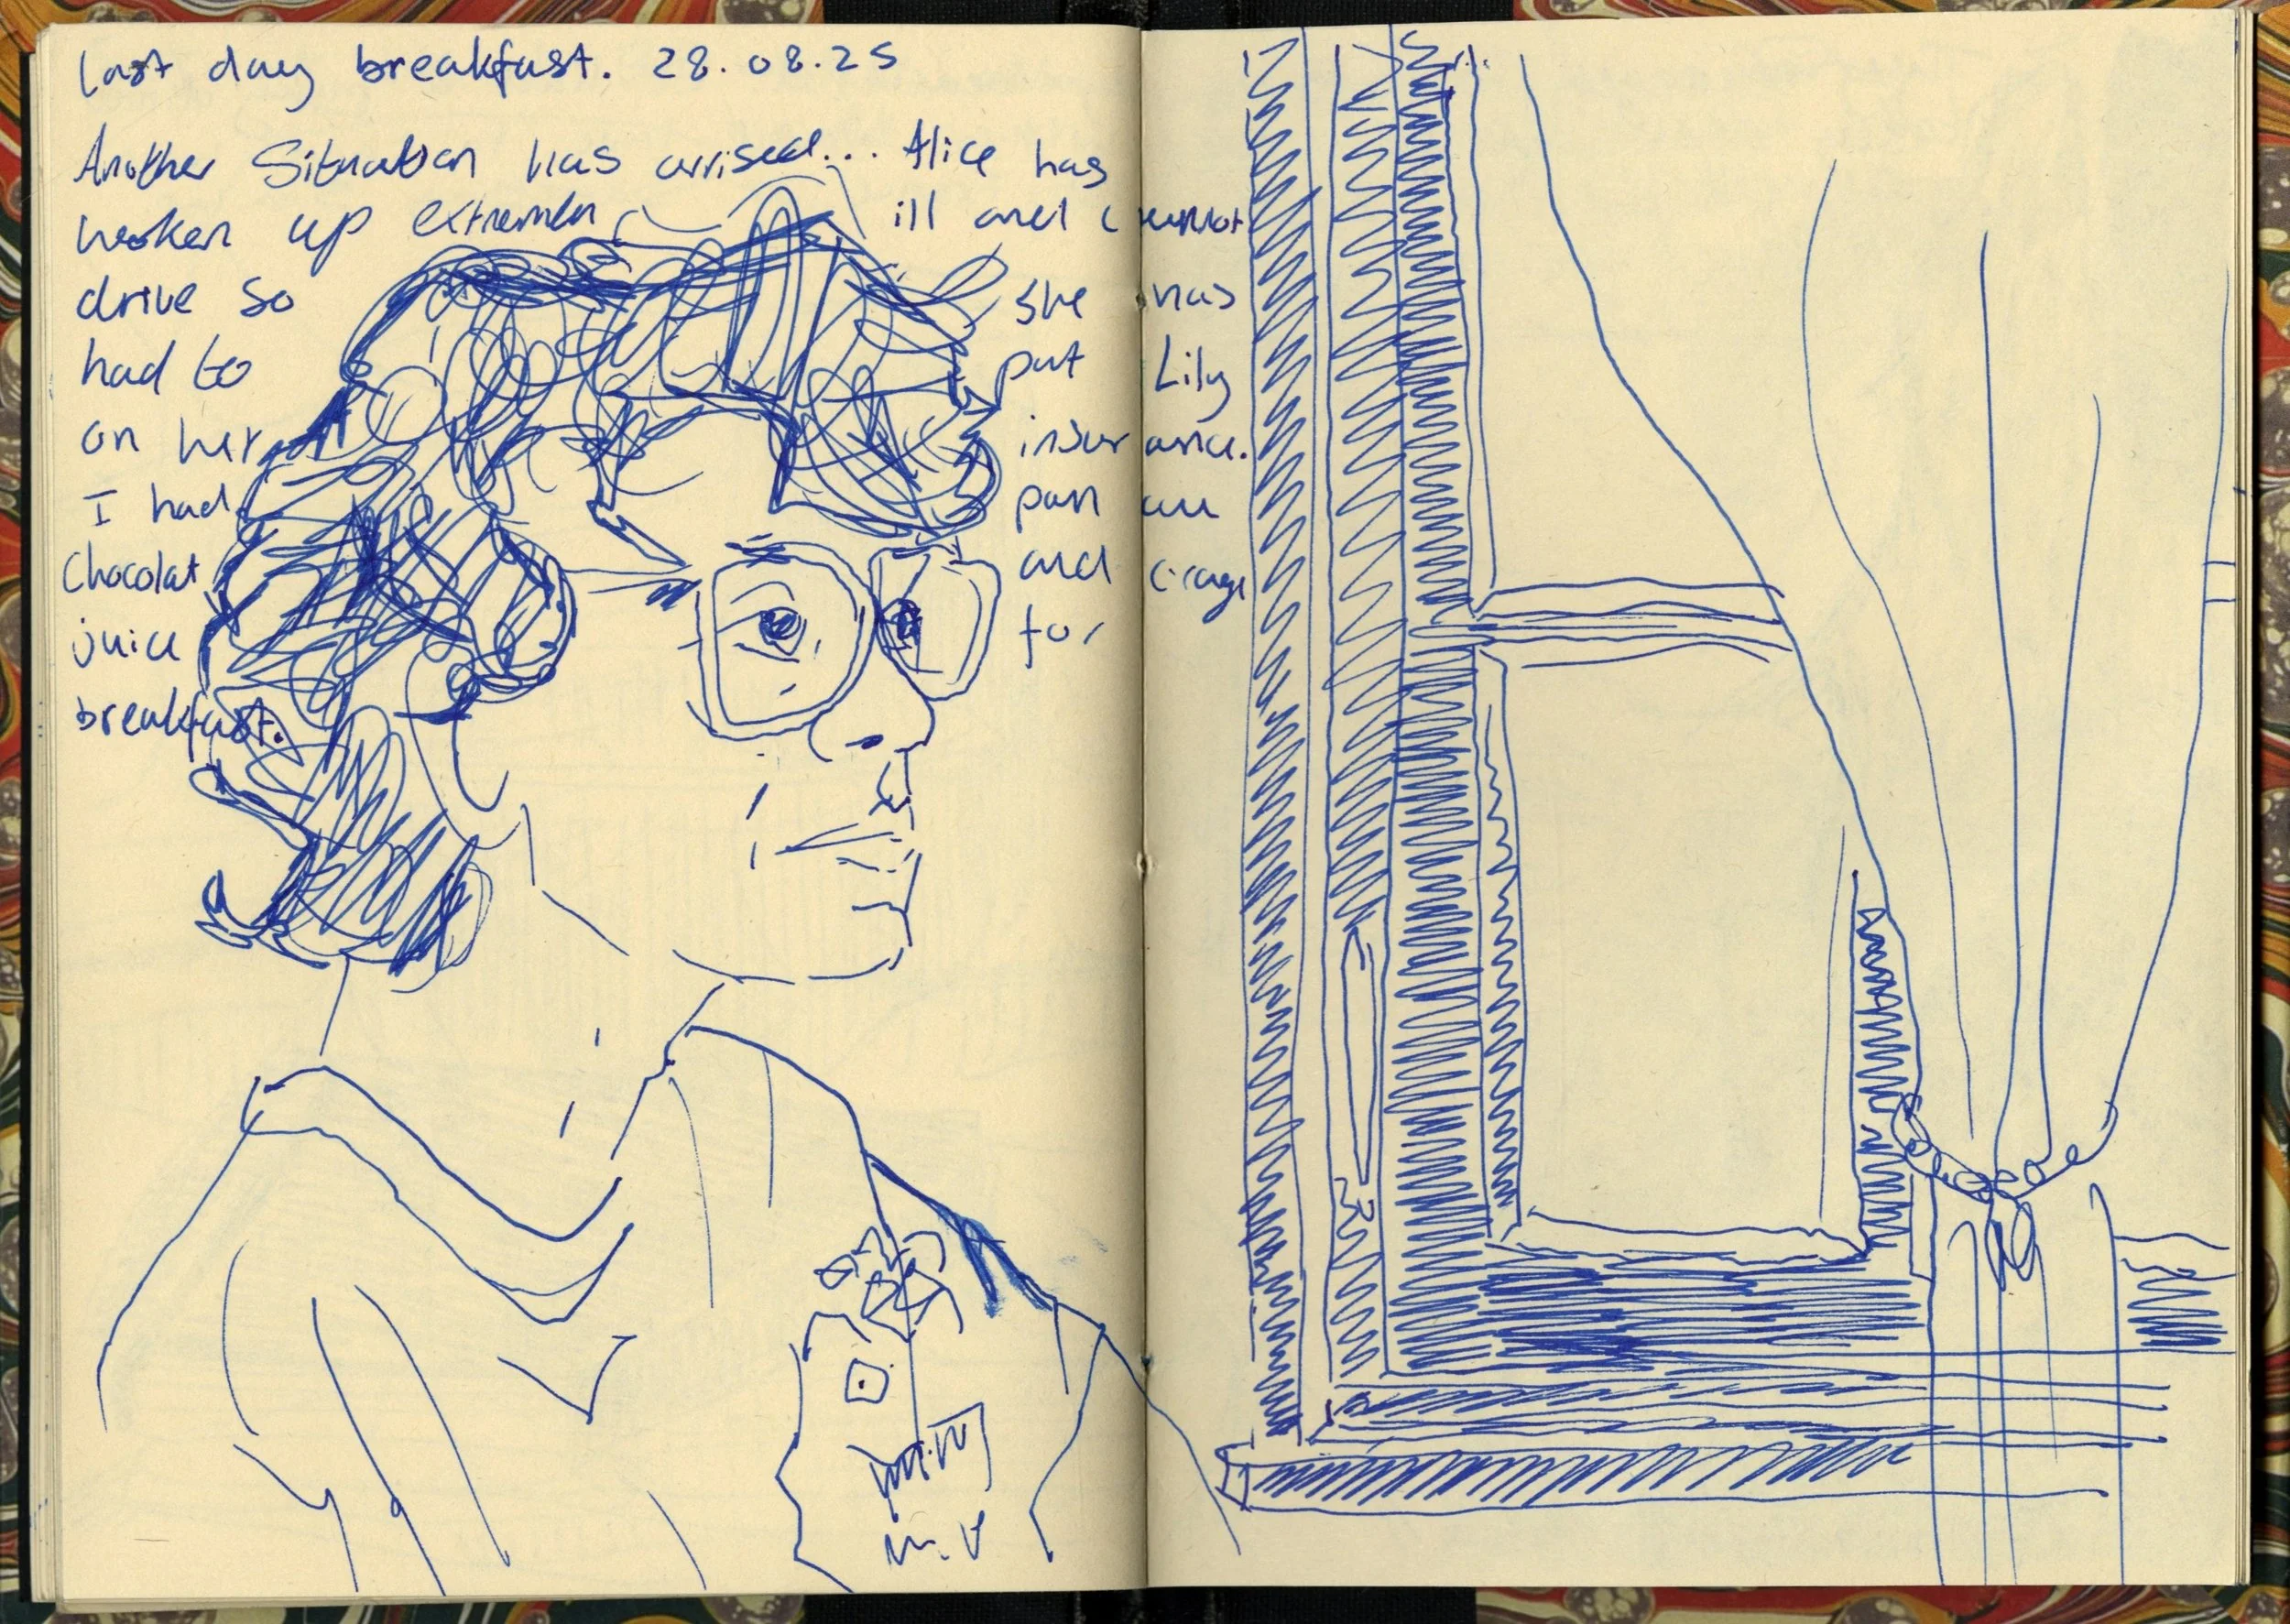 last day breakfast. 28.08.25
Another Situation has arrised... Alice has
woken up extremly ill and cannot
drive so she has
had to put Lily
on her insurance.
I had pan au
Chocolat and orage
juice for
breakfast.